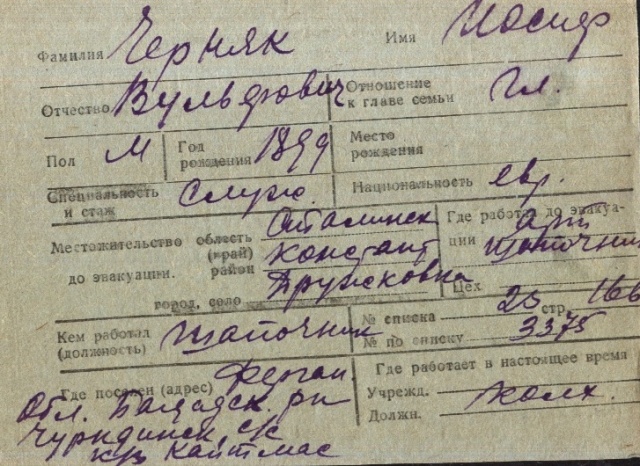 Фамилия Черняк Имя Иосиф
Отчество Вульфович Отношение к главе семьи Гл.
Пол М Год рождения 1899 Место рождения
Специальность и стаж Служ. Национальность евр.
Местожительство до эвакуации. область (край) Сталинск Где работал до эвакуации Арт Шапочник
район Констант
город, село Дружковка Цех
Кем работал (должность) Шапочник № списка 25 стр. 166
№ по списку 3375
Где поселен (адрес) Ферган Где работает в настоящее время
Обл. Багдадск. рн Учрежд.
Чуриндинск. с/с Должн. колх.
к/з Кайтмас